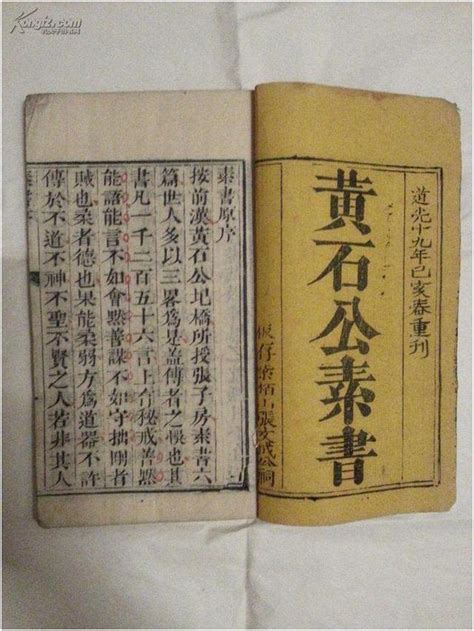 Kongfz.com
道光十九年己亥春重刊
黃石公素書
板存紫栢山張文成公祠
素書原序
按前漢黃石公圯橋所授張子房素書六
篇世人多以三畧爲是盖傳者之悞也其
書凡一千二百五十六言上有秘戒善黙
能語能言不如會黙善謀不如守拙剛者
賊也柔者德也果能柔弱方爲道器不許
傳於不道不神不聖不賢之人若非其人